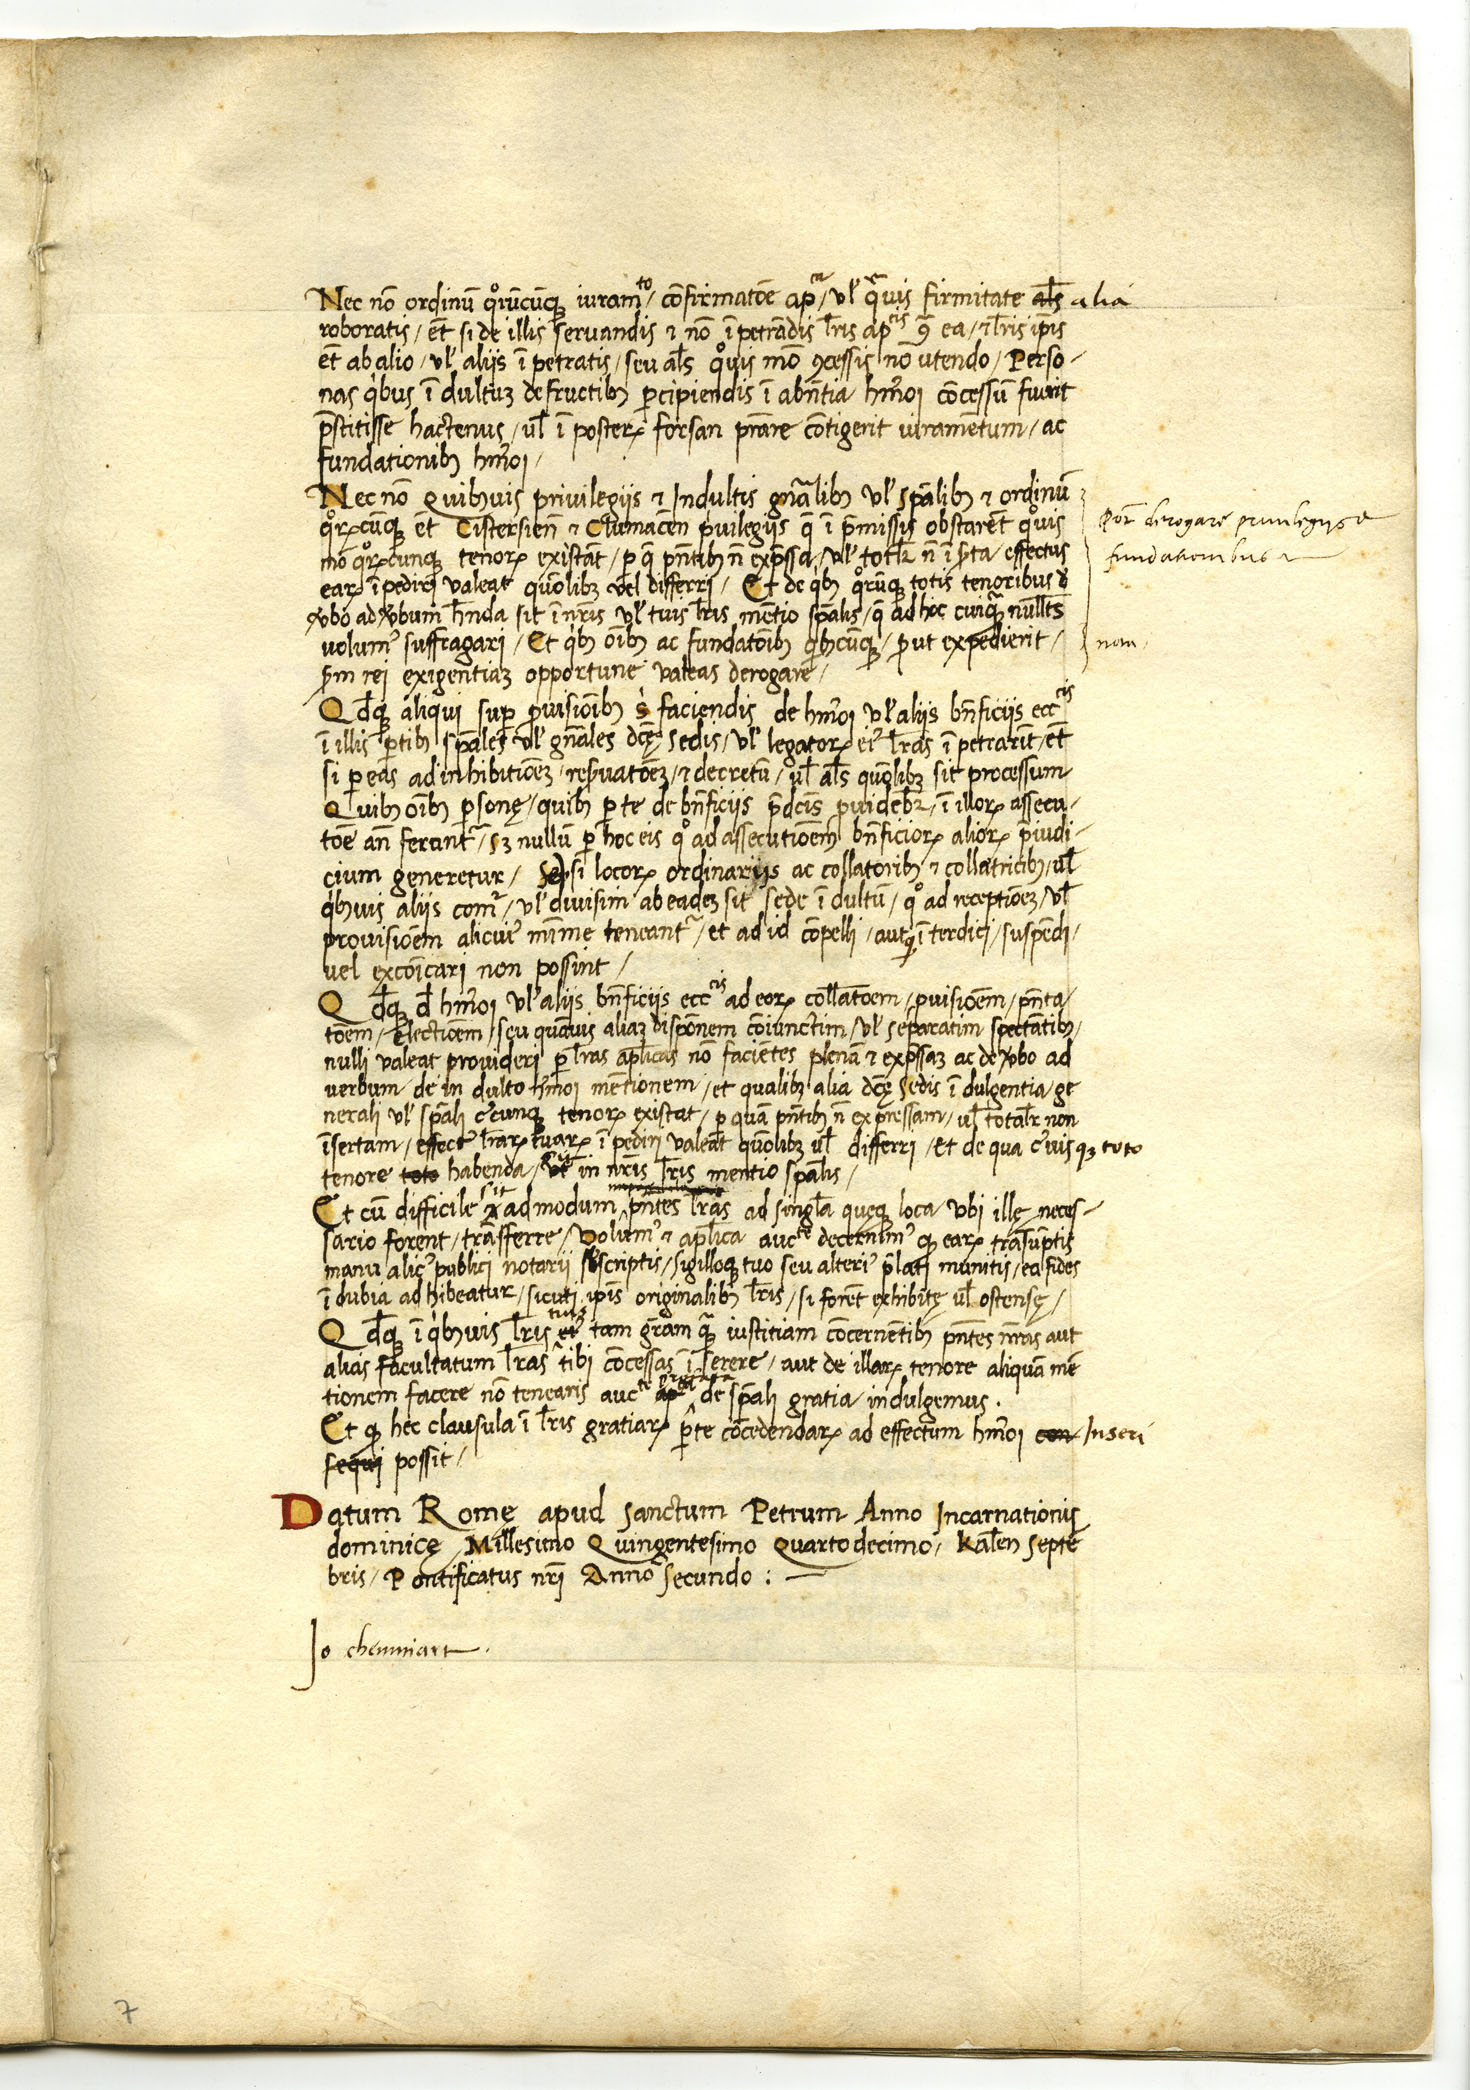 Nec nō ordinū qͦrūcūqꝫ iuramᵗᵒ / cōfirmatōe apᶜᵃ / vl' qᵃ̄uis firmitate al̄s alia
roboratis / ēt si de illis seruandis ⁊ nō īpetrādis l̄ris apᶜⁱˢ ꝯᵃ ea / ⁊ l̄ris ip̄is
ēt ab alio / vl' aliis īpetratis / seu al̄s qͦuis mō ꝯcessis nō utendo / Perso-
nas qⁱbus īdultuꝫ de fructibꝫ ꝑcipiendis ī abn̄tia hm̄oi cōcessū fuerit
p̄stitisse hactenus / ul̄ ī posteꝝ forsan p̄tare cōtigerit iuramētum / ac
fundationibꝫ hm̄oi /
Nec nō quibꝫuis priuilegiis ⁊ Indultis gn̄alibꝫ vl' sp̄alibꝫ ⁊ ordinū
qͦꝝcūqꝫ ēt Cistersien̄ ⁊ Clumacēn pͥuilegiis q̄ ī p̄missis obstarēt qͦuis
mō qͦꝝcunqꝫ tenoꝝ existāt / ꝑ q̄ pn̄tibꝫ n̄ exp̄ssa / vl' totlr̄ n̄ īsᵉrta effectus
eaꝝ īpediri valeat quōlibꝫ uel differri / Et de qⁱbꝫ qͦrūqꝫ totis tenoribus d
ūbo ad ūbum hn̄da sit ī nr̄is vl' tuis l̄ris mētio sp̄alis / q̄ ad hoc cuiqᵃ̄ nullts̄
uolumꝰ suffragari / Et qⁱbꝫ oībꝫ ac fundatōibꝫ qⁱbꝫcūqꝫ / ꝓut expedierit / non
sᵉm rei exigentiaꝫ opportune valeas derogare /
Pōt derogare priuilegiis ⁊
fundationibus ⁊
Qd̄qꝫ aliqui suꝑ ꝓuisiōibꝫ sⁱ faciendis de hm̄oi vl' aliis bn̄ficiis eccᶜⁱˢ
ī illis ꝑtibꝫ sp̄ales vl' gn̄ales dcę̄ Sedis / vl' legatoꝝ eiꝰ l̄ras īpetrarīt / ēt
si ꝑ eas ad inhibitiōeꝫ / resᵉruatōeꝫ / ⁊ decretū / ul̄ al̄s quōlibꝫ sit processum
Quibꝫ oībꝫ ꝑsonę / quibꝫ ꝑ te de bn̄ficiis p̄dcīs ꝓuidebr̄ / ī illoꝝ assecu-
tōe an̄ ferantʳ / sꝫ nullū ꝑ hoc eis qͦ ad assecutiōem bn̄ficioꝝ alioꝝ p̄iudi-
cium generetur / Seu si locoꝝ ordinariis ac collatoribꝫ ⁊ collatricibꝫ / ul̄
qⁱbꝫuis aliis comʳ / vl' diuisim ab eadeꝫ sit sede īdultū / qͦ ad receptiōeꝫ / vl̄
prouisiōem alicuiꝰ mīme teneantʳ / et ad id cōpelli / aut qⁱ īterdici / suspēdi /
uel excōicari non possint /
Qd̄qꝫ d̄ hm̄oi vl' aliis bn̄ficiis eccᶜⁱˢ ad eoꝝ collatōem / ꝓuisiōem / pn̄ta
tōem / Electiōem / seu quāuis aliaꝫ dispōnem cōiunctim / vl' sep̄aratim spectātibꝫ /
nulli valeat prouideri ꝑ l̄ras ap̄licas nō faciētes plenā ⁊ exp̄ssaꝫ ac de ūbo ad
uerbum de indulto hm̄oi mētionem / et qualibꝫ alia dcę̄ Sedis īdulgentia / ge
nerali vl' sp̄ali cꝰcunqꝫ tenoꝝ existat / ꝑ quā pn̄tibꝫ n̄ expressam / ul̄ totalr̄ non
īsertam / effectꝰ l̄raꝝ tuaꝝ īpediri valeat quōlibꝫ ul̄ differri / Et de qua cꝰuis qꝫ toto
tenore toto habenda / sit in nr̄is l̄ris mentio sp̄alis /
Et cū difficile sit admodum pn̄tes l̄ras ad singl̄a quęqꝫ loca vbi illę neces-
sario forent / trāsferre / Volumꝰ ⁊ ap̄lica aucᵗᵉ decernimꝰ qꝫ eaꝝ trāsūptis
manu alicꝰ publici notarii sb̄scriptis / sigilloqꝫ tuo seu alteriꝰ p̄lati munitis / ea fides
īdubia adhibeatur / sicuti ip̄is originalibꝫ l̄ris / si forēt exhibitę ul̄ ostensę /
Qd̄qꝫ ī qⁱbꝫuis l̄ris tuis etꝰ tam gr̄am qᵃ̄ iustitiam cōcernētibꝫ pn̄tes nr̄as aut
alias facultatum l̄ras tibi cōcessas īserere / aut de illaꝝ tenore aliquā mē
tionem facere nō tenearis aucᵗᵉ de sp̄ali gratia indulgemus .
Et qꝫ hec clausula ī l̄ris gratiaꝝ ꝑ te cōcedendaꝝ ad effectum hm̄oi con Inseri
sequi possit /
Datum Romę apud Sanctum Petrum Anno Incarnationis
dominicę Millesimo Quingentesimo Quartodecimo / Kalēn Septē
bris / Pontificatus nr̄i Anno Secundo : —
Jo chemniart .
7